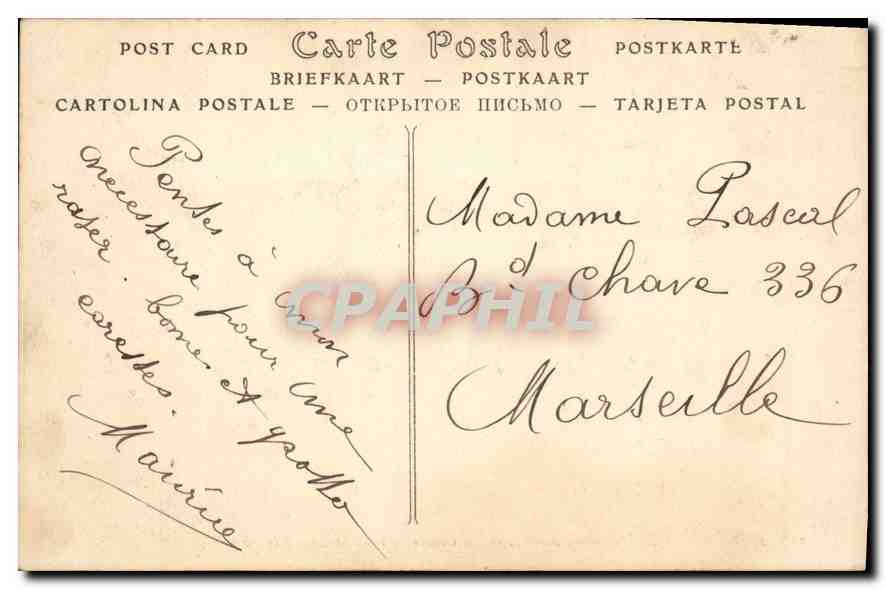 POST CARD Carte Postale POSTKARTE
BRIEFKAART — POSTKAART
CARTOLINA POSTALE — ОТКРЫТОЕ ПИСЬМО — TARJETA POSTAL
Penses à mon
necessaire pour me
raser. bone et grosso
caresses.
Maurice
Madame Pascal
Bd Chave 336
Marseille
CPAPHIL